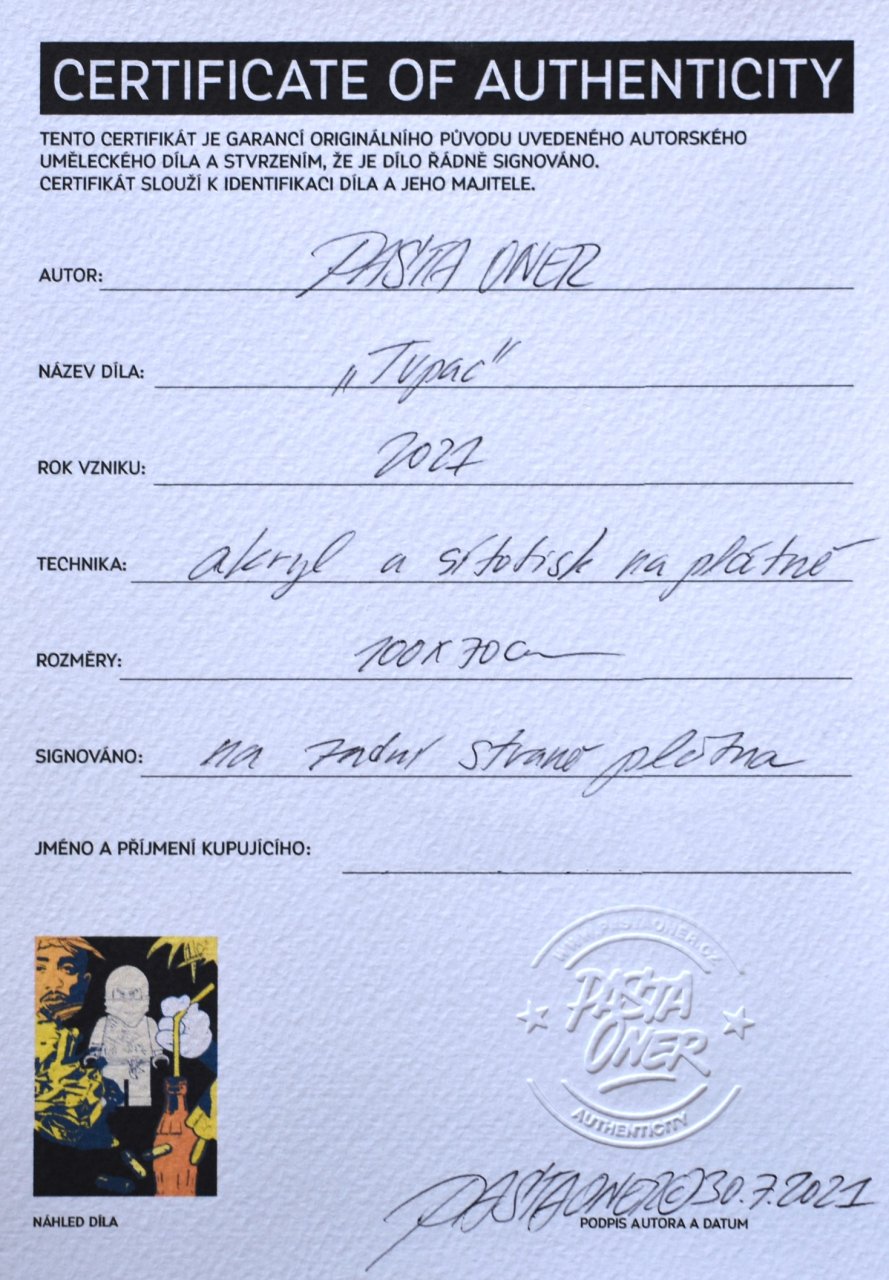 CERTIFICATE OF AUTHENTICITY
TENTO CERTIFIKÁT JE GARANCÍ ORIGINÁLNÍHO PŮVODU UVEDENÉHO AUTORSKÉHO
UMĚLECKÉHO DÍLA A STVRZENÍM, ŽE JE DÍLO ŘÁDNĚ SIGNOVÁNO.
CERTIFIKÁT SLOUŽÍ K IDENTIFIKACI DÍLA A JEHO MAJITELE.
AUTOR: PASTA ONER
NÁZEV DÍLA: „Tupac“
ROK VZNIKU: 2021
TECHNIKA: akryl a sítotisk na plátně
ROZMĚRY: 100x70cm
SIGNOVÁNO: na zadní straně plátna
JMÉNO A PŘÍJMENÍ KUPUJÍCÍHO:
WWW.PASTAONER.CZ
PASTA
ONER
AUTHENTICITY
PASTA ONER © 30.7.2021
NÁHLED DÍLA
PODPIS AUTORA A DATUM